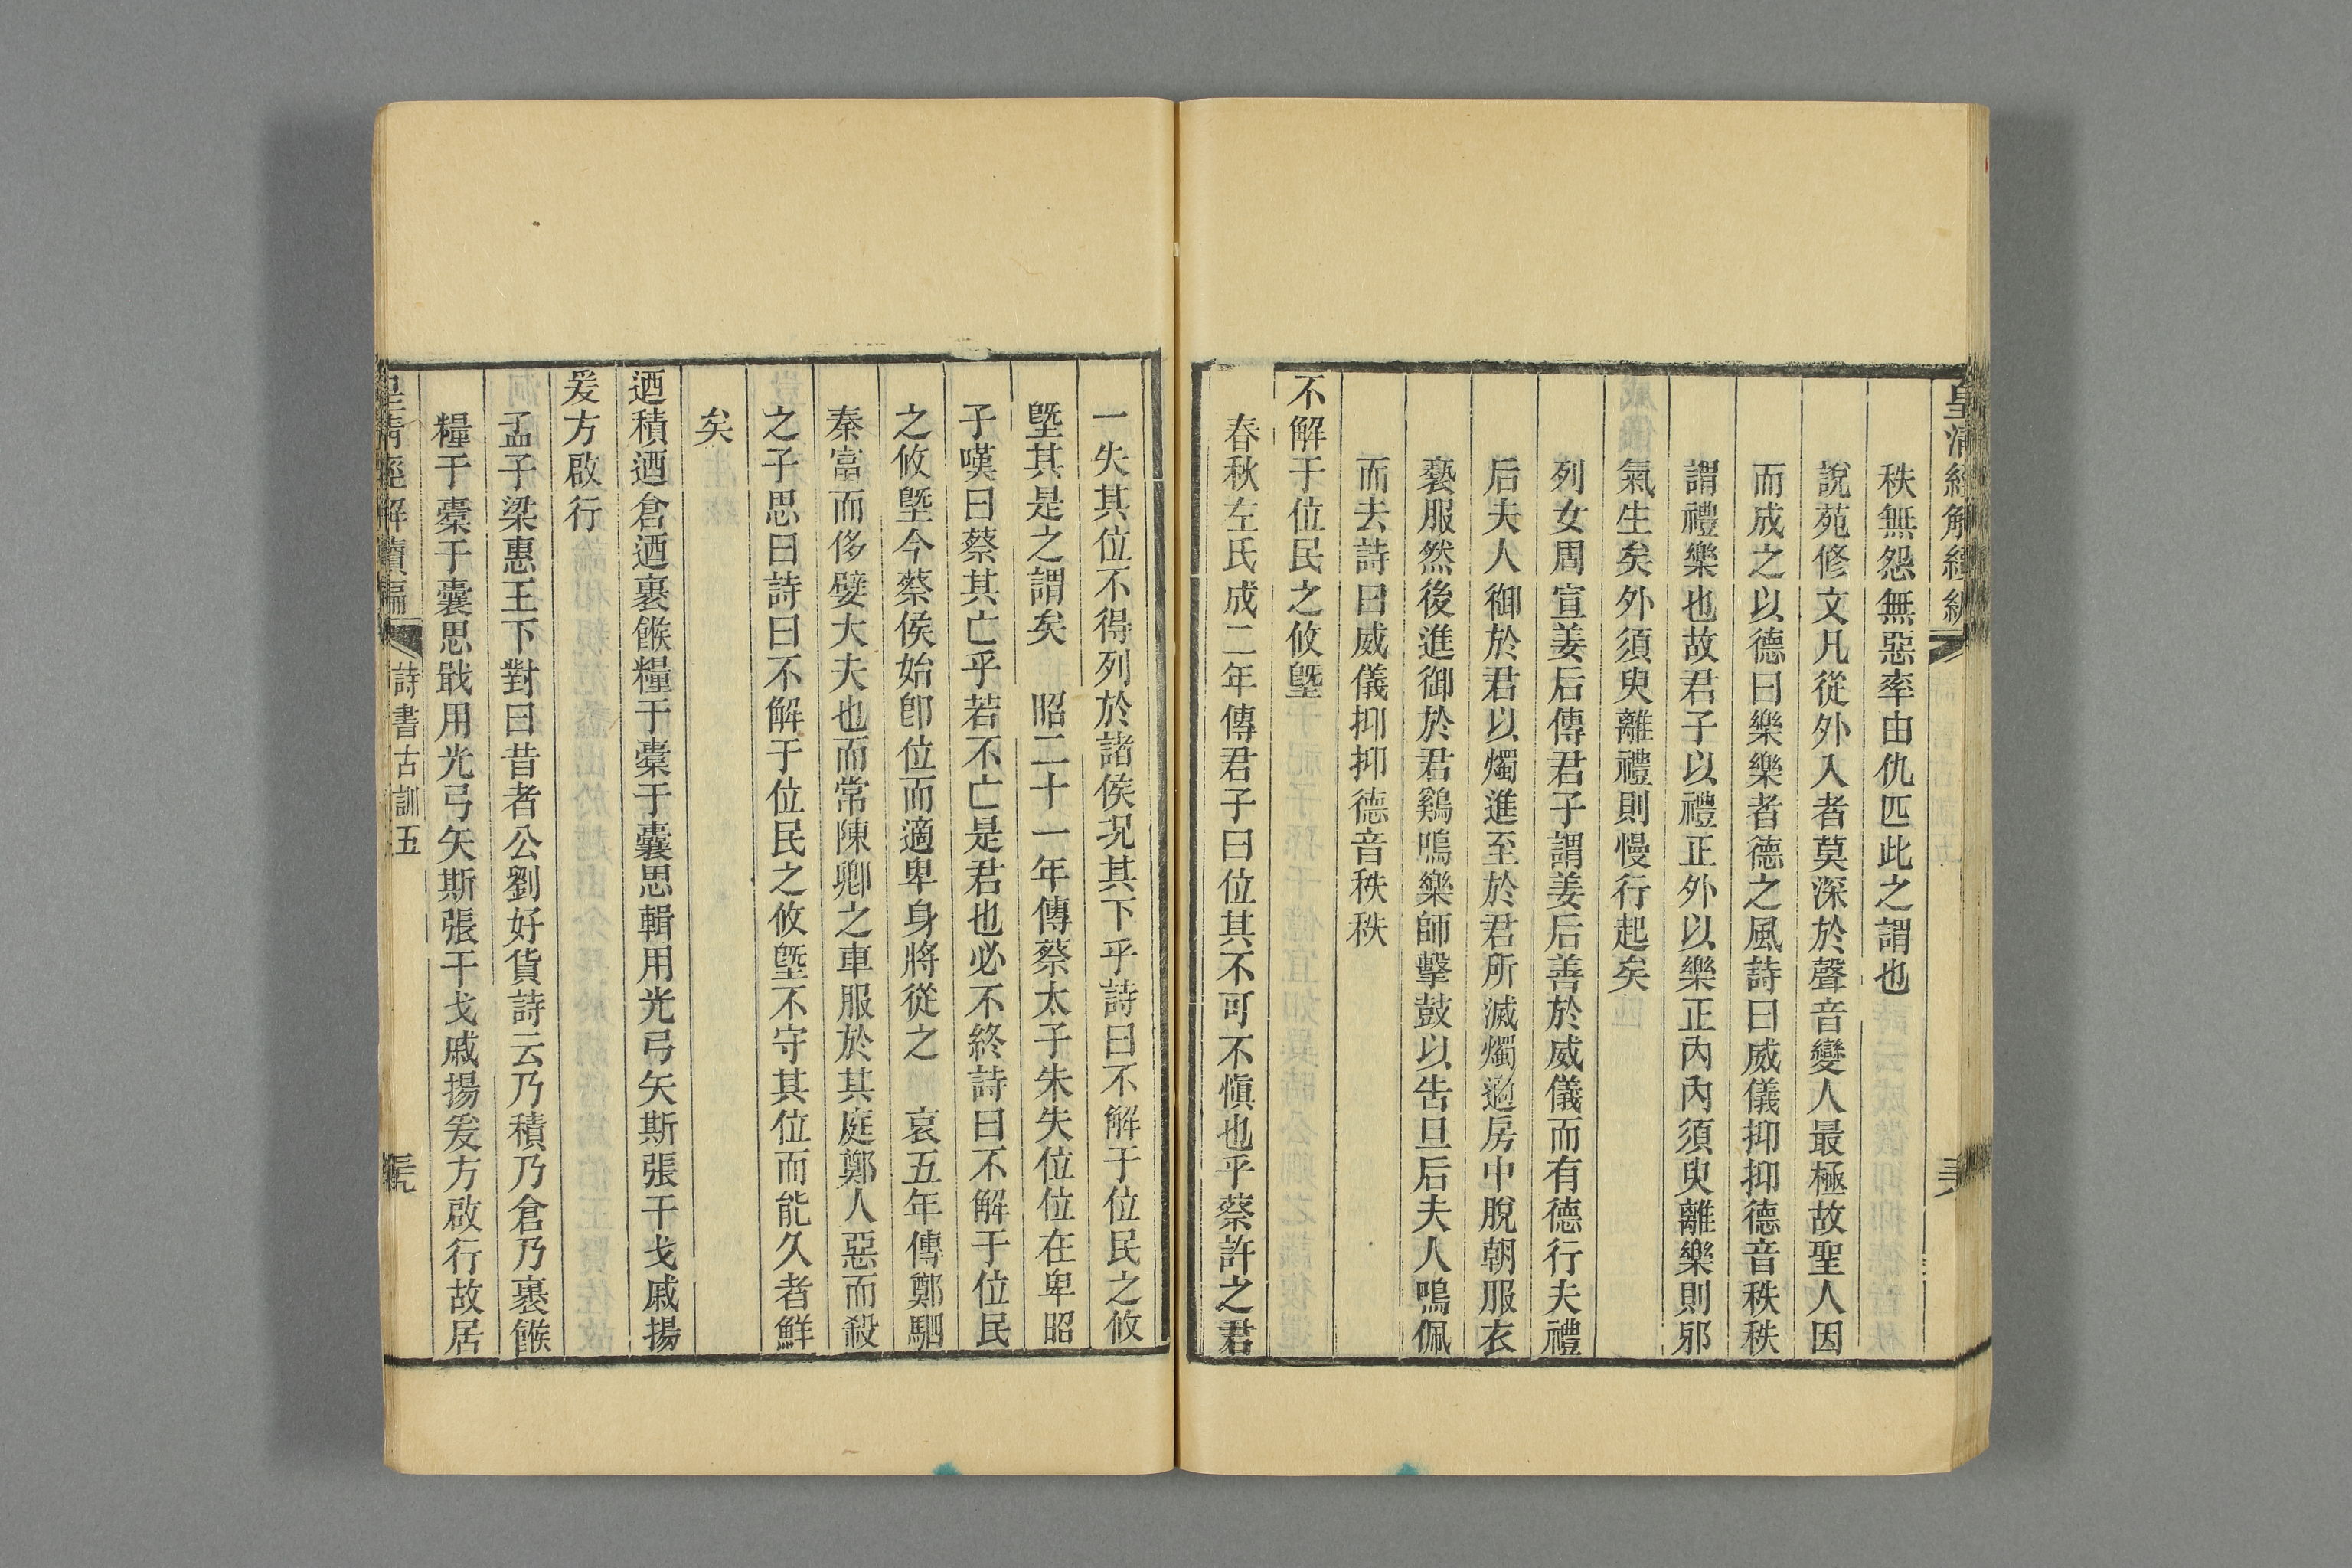 皇清經解續編
秩無怨無惡率由仇匹此之謂也
說苑修文凡從外入者莫深於聲音變人最極故聖人因
而成之以德曰樂樂者德之風詩曰威儀抑抑德音秩秩
謂禮樂也故君子以禮正外以樂正內內須臾離樂則邪
氣生矣外須臾離禮則慢行起矣
列女周宣姜后傳君子謂姜后善於威儀而有德行夫禮
后夫人御於君以燭進至於君所滅燭適房中脫朝服衣
褻服然後進御於君鷄鳴樂師擊鼓以告旦后夫人鳴佩
而去詩曰威儀抑抑德音秩秩
不解于位民之攸塈
春秋左氏成二年傳君子曰位其不可不愼也乎蔡許之君
一失其位不得列於諸侯況其下乎詩曰不解于位民之攸
塈其是之謂矣　昭二十一年傳蔡太子朱失位位在卑昭
子嘆曰蔡其亡乎若不亡是君也必不終詩曰不解于位民
之攸塈今蔡侯始卽位而適卑身將從之　哀五年傳鄭駟
秦富而侈嬖大夫也而常陳卿之車服於其庭鄭人惡而殺
之子思曰詩曰不解于位民之攸塈不守其位而能久者鮮
矣
迺積迺倉迺裹餱糧于橐于囊思輯用光弓矢斯張干戈戚揚
爰方啟行
孟子梁惠王下對曰昔者公劉好貨詩云乃積乃倉乃裹餱
糧于橐于囊思戢用光弓矢斯張干戈戚揚爰方啟行故居
皇清經解續編
詩書古訓五